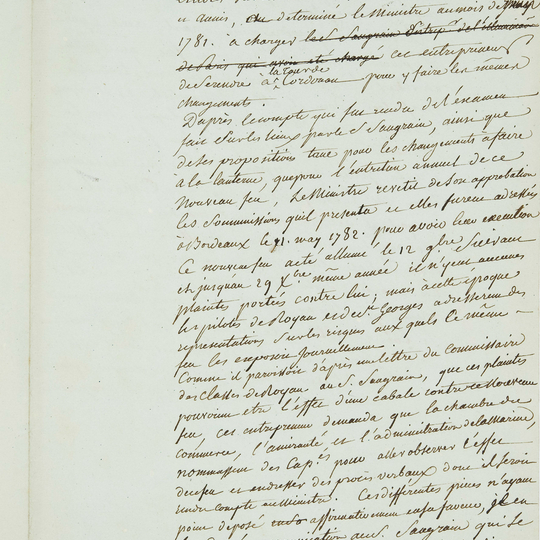 et amis, ont determiné le Ministre au mois de
1781. à charger le S. Saugrain Entrep. de l'illumination
de Paris qui avoit été chargé cet entrepreneur
de se rendre à la tour de Cordouan pour y faire les mêmes
changements.
D'après le compte qui fut rendu de l'examen
fait sur les lieux par le S. Saugrain, ainsi que
de ses propositions tant pour les changements à faire
à la lanterne, que pour l'entretien annuel de ce
nouveau feu, Le Ministre revetit de son approbation
les soummissions qu'il presenta et elles furent adressées
à Bordeaux le 11. may 1782. pour avoir leur execution
Ce nouveau feu a été allumé le 12 9bre suivant
et jusqu'au 29 Xbre même année il n'y eut aucunes
plaintes portées contre lui; mais à cette époque
les pilotes de Royan et de St Georges adresserent des
representations sur les risques aux quels ce même
feu les exposoit journellement.
Comme il paroissoit d'après une lettre du Commissaire
des Classes de Royan au S. Saugrain, que ces plaintes
pouvoient etre l'effet d'une cabale contre ce nouveau
feu, cet entrepreneur demanda que la chambre de
commerce, l'amirauté et l'administration de la Marine,
nommassent des Cap.es pour aller observer l'effet
de ce feu et en dresser des procès verbaux dont il seroit
rendu compte au Ministre. Ces differentes pieces n'ayant
point deposé affirmativement en sa faveur, il en
au S. Saugrain qui se